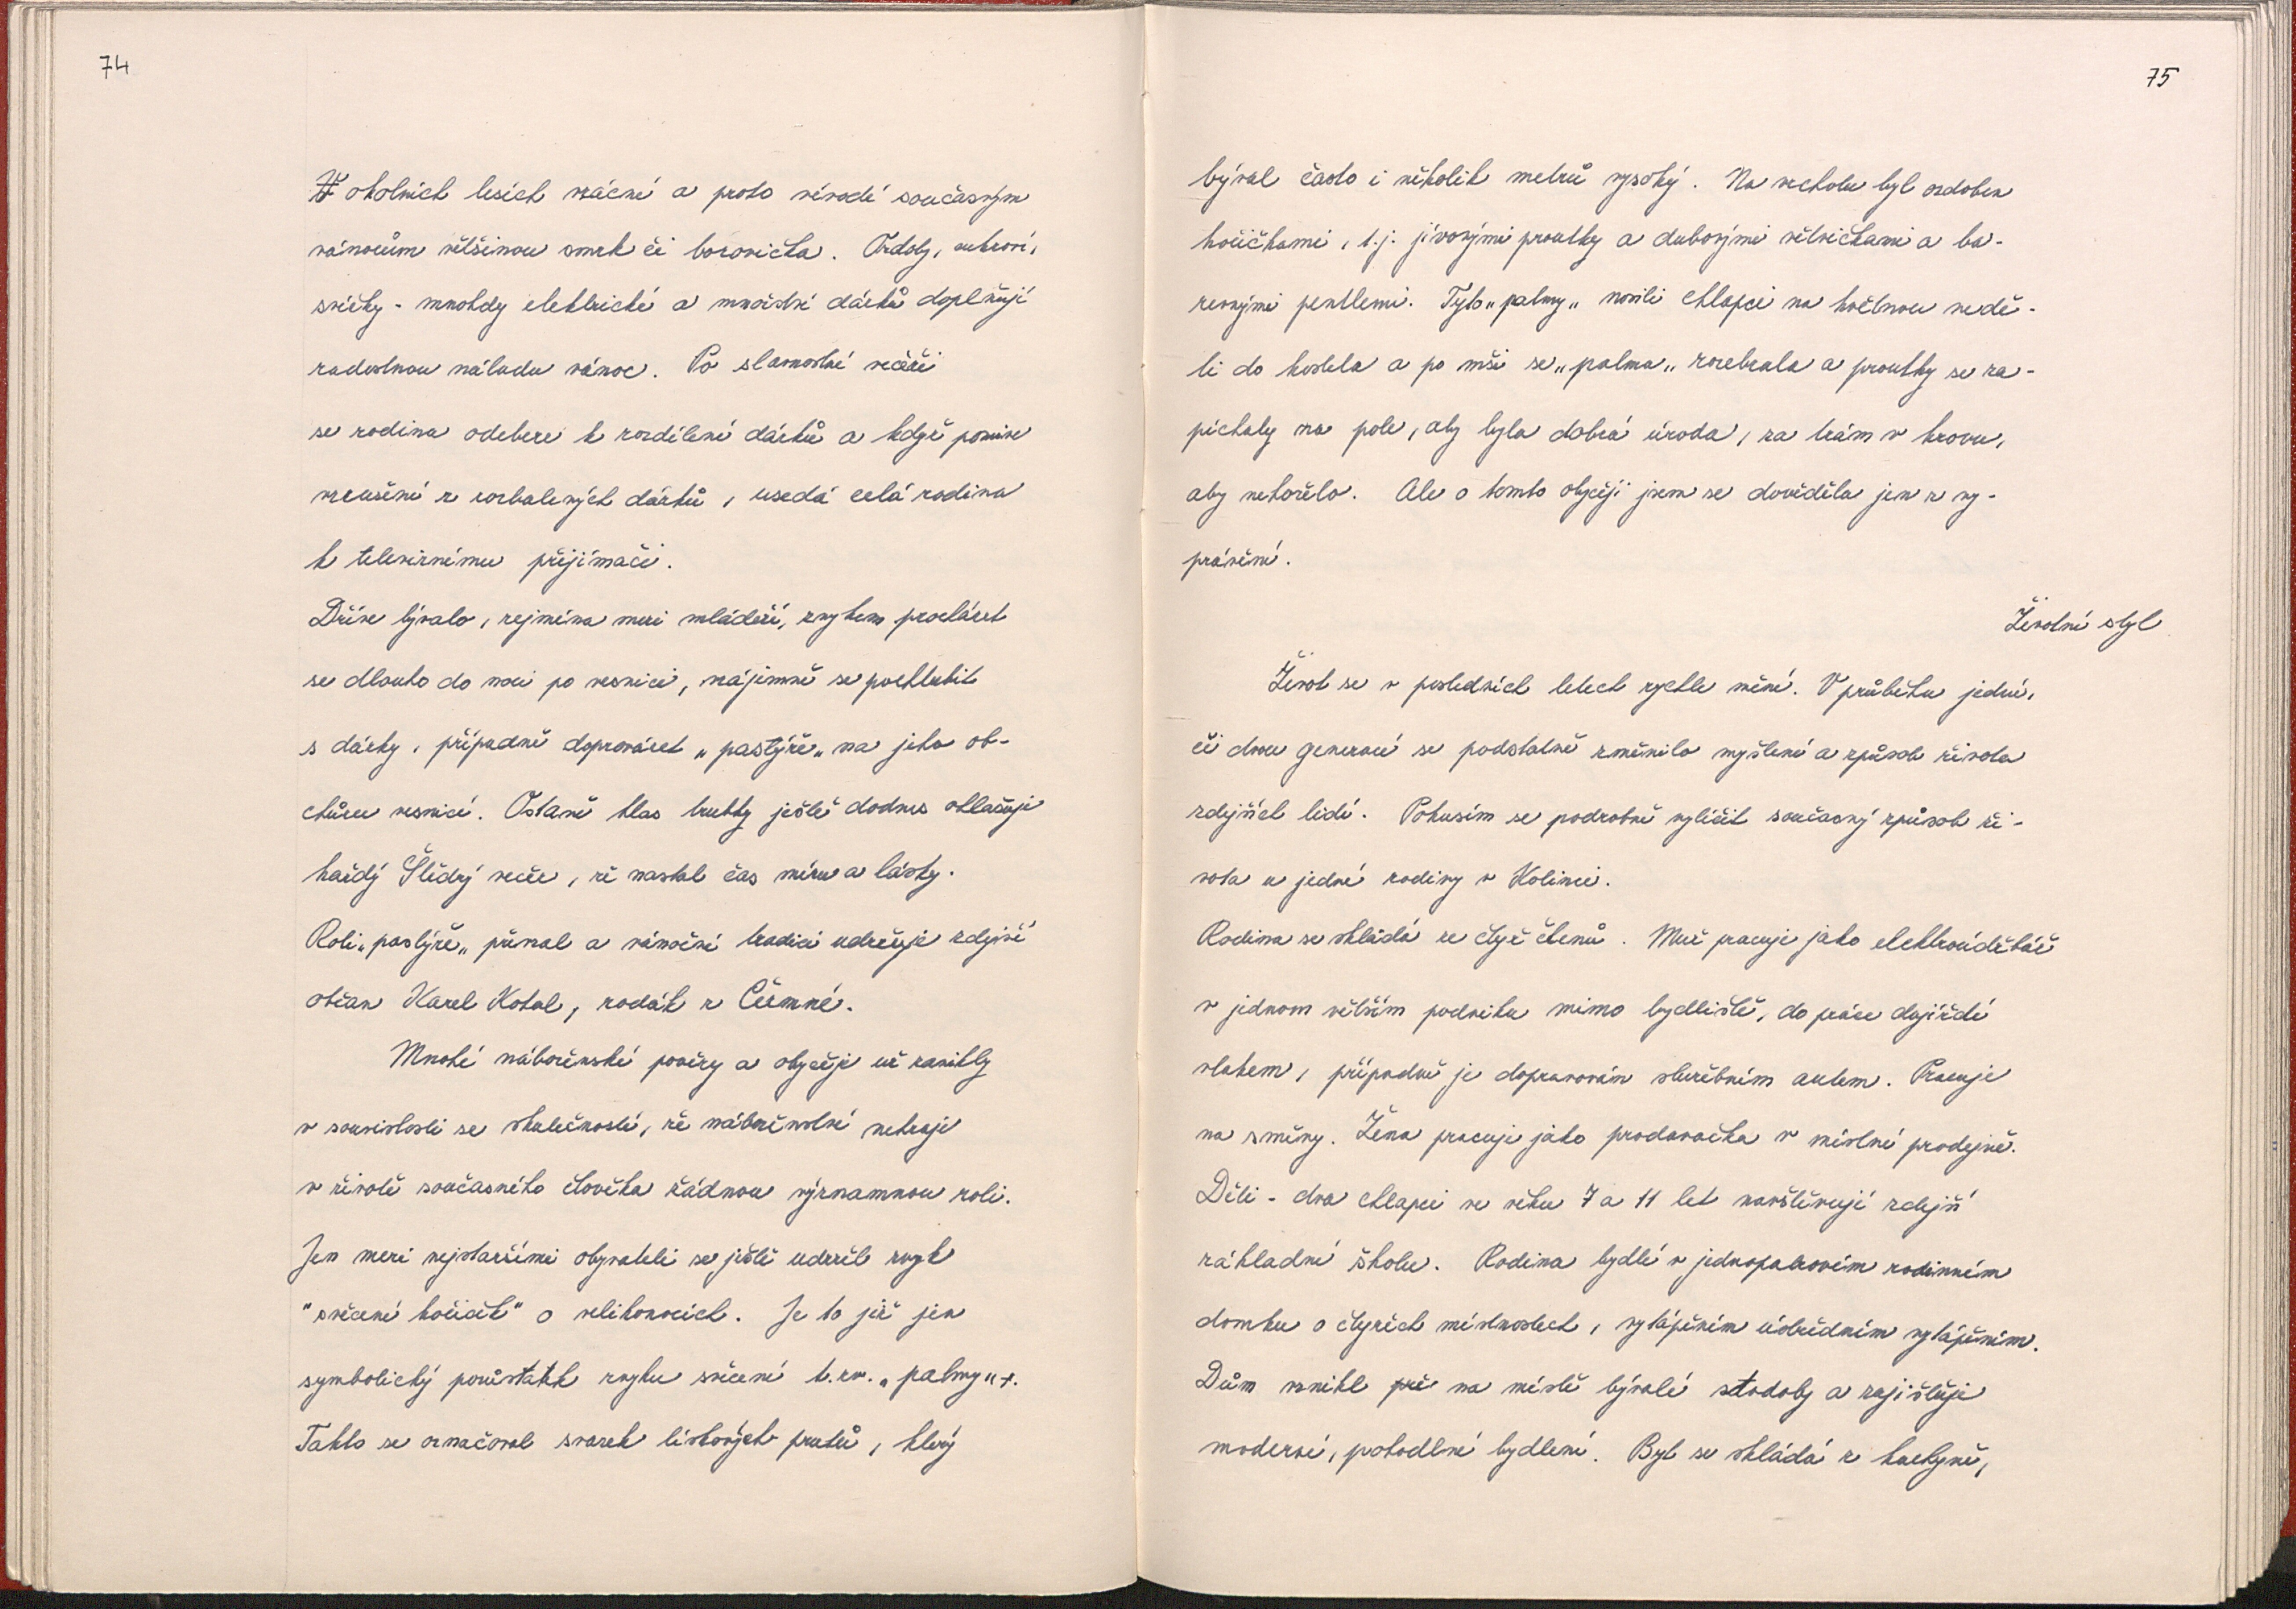 74
V okolních lesích vzácné a proto vévodí současným
vánocům většinou smrk či borovička. Ozdoby, cukroví,
svíčky - mnohdy elektrické a množství dárků doplňují
radostnou náladu vánoc. Po slavnostní večeři
se rodina odebere k rozdělení dárků a když pomine
vzrušení z rozbalených dárků, usedá celá rodina
k televiznímu přijímači.
Dříve bývalo, zejména mezi mládeží, zvykem procházet
se dlouho do noci po vesnici, vzájemně se pochlubit
s dárky, případně doprovázet „pastýře„ na jeho ob-
chůzce vesnicí. Ostatně hlas trubky ještě dodnes ohlašuje
každý Štědrý večer, že nastal čas míru a lásky.
Roli „pastýře„ převzal a vánoční tradici udržuje zdejší
občan Karel Kotal, rodák z Čermné.
Mnohé náboženské pověry a obyčeje už zanikly
v souvislosti se skutečností, že náboženství nehraje
v životě současného člověka žádnou významnou roli.
Jen mezi nejstaršími obyvateli se ještě udržel zvyk
"svěcení kočiček" o velikonocích. Je to již jen
symbolický pozůstatek zvyku svěcení t.zv. „palmy„.
Takto se označoval svazek lískových prutů, který
75
býval často i několik metrů vysoký. Na vrcholu byl ozdoben
kočičkami, t.j. jívovými proutky a dubovými větvičkami a ba-
revnými pentlemi. Tyto „palmy„ nosili chlapci na květnou nedě-
li do kostela a po mši se „palma„ rozebrala a proutky se za-
píchaly na pole, aby byla dobrá úroda, za trám v krovu,
aby nehořelo. Ale o tomto obyčeji jsem se dověděla jen z vy-
právění.
Životní styl
Život se v posledních letech rychle mění. V průběhu jedné,
či dvou generací se podstatně změnilo myšlení a způsob života
zdejších lidí. Pokusím se podrobně vylíčit současný způsob ži-
vota u jedné rodiny v Kolinci.
Rodina se skládá ze čtyř členů. Muž pracuje jako elektroúdržbář
v jednom větším podniku mimo bydliště, do práce dojíždí
vlakem, případně je dopravován služebním autem. Pracuje
na směny. Žena pracuje jako prodavačka v místní prodejně.
Děti - dva chlapci ve věku 7 a 11 let navštěvují zdejší
základní školu. Rodina bydlí v jednopatrovém rodinném
domku o čtyřech místnostech, vytápěním ústředním vytápěním.
Dům vznikl na místě bývalé stodoly a zajišťuje
moderní, pohodlné bydlení. Byt se skládá z kuchyně,